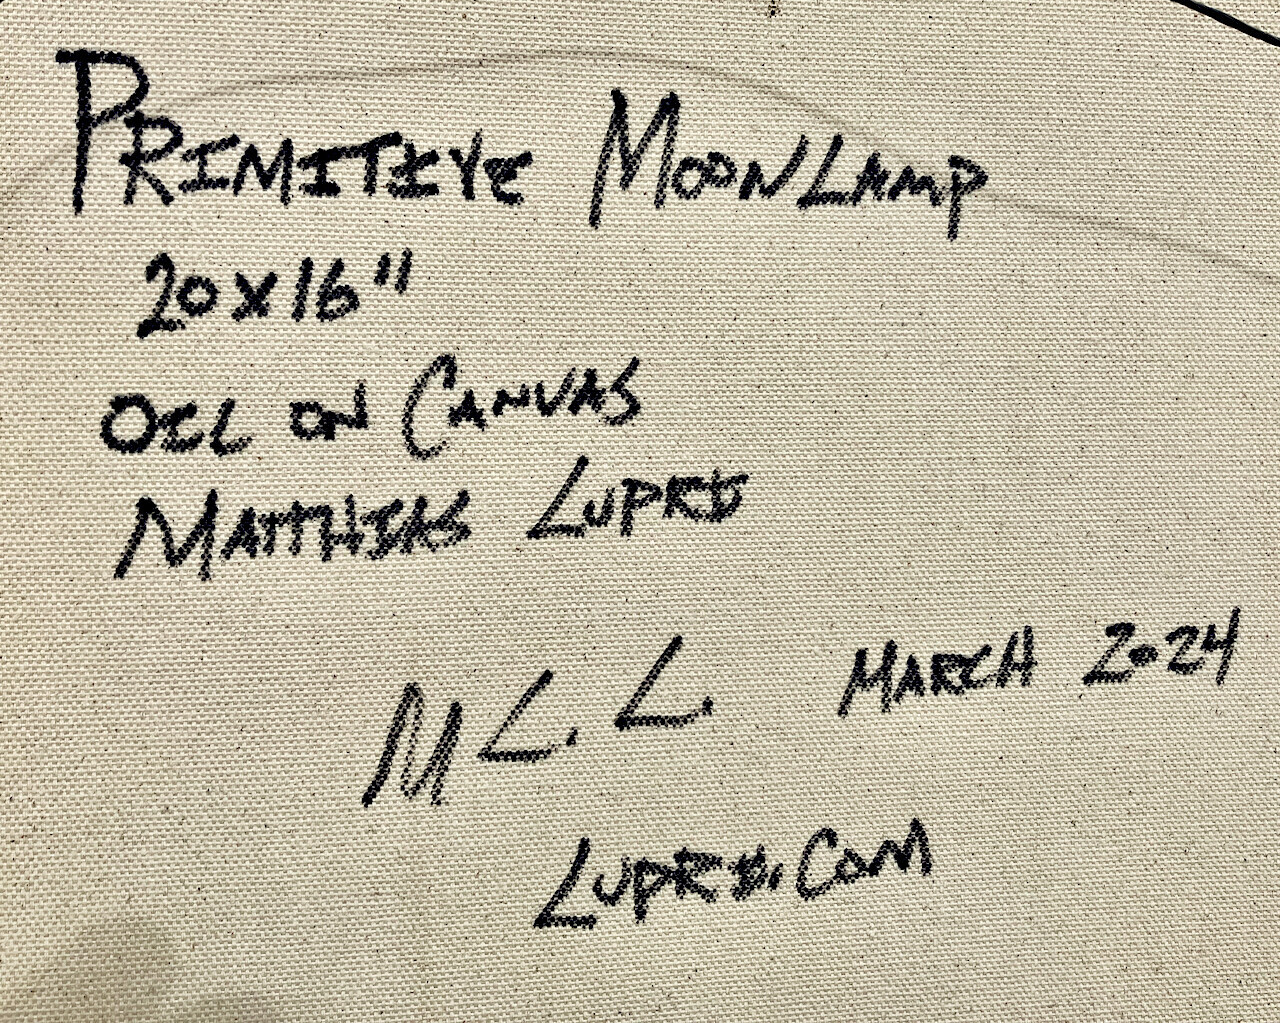 PRIMITIVE MOONLAMP
20x16"
OIL ON CANVAS
MATTHIAS LUPRI
M L. L. MARCH 2024
LUPRI.COM